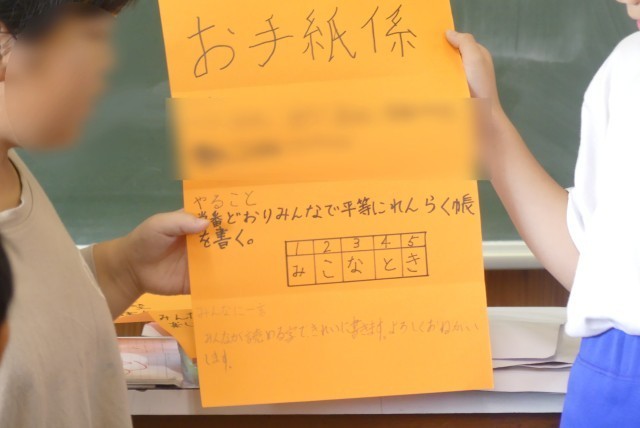 お手紙係
やること
当番どおりみんなで平等にれんらく帳
を書く。
1 2 3 4 5
み こ な と き
みんなに一言
みんなが読める字できれいに書きます。よろしくおねがい
します。